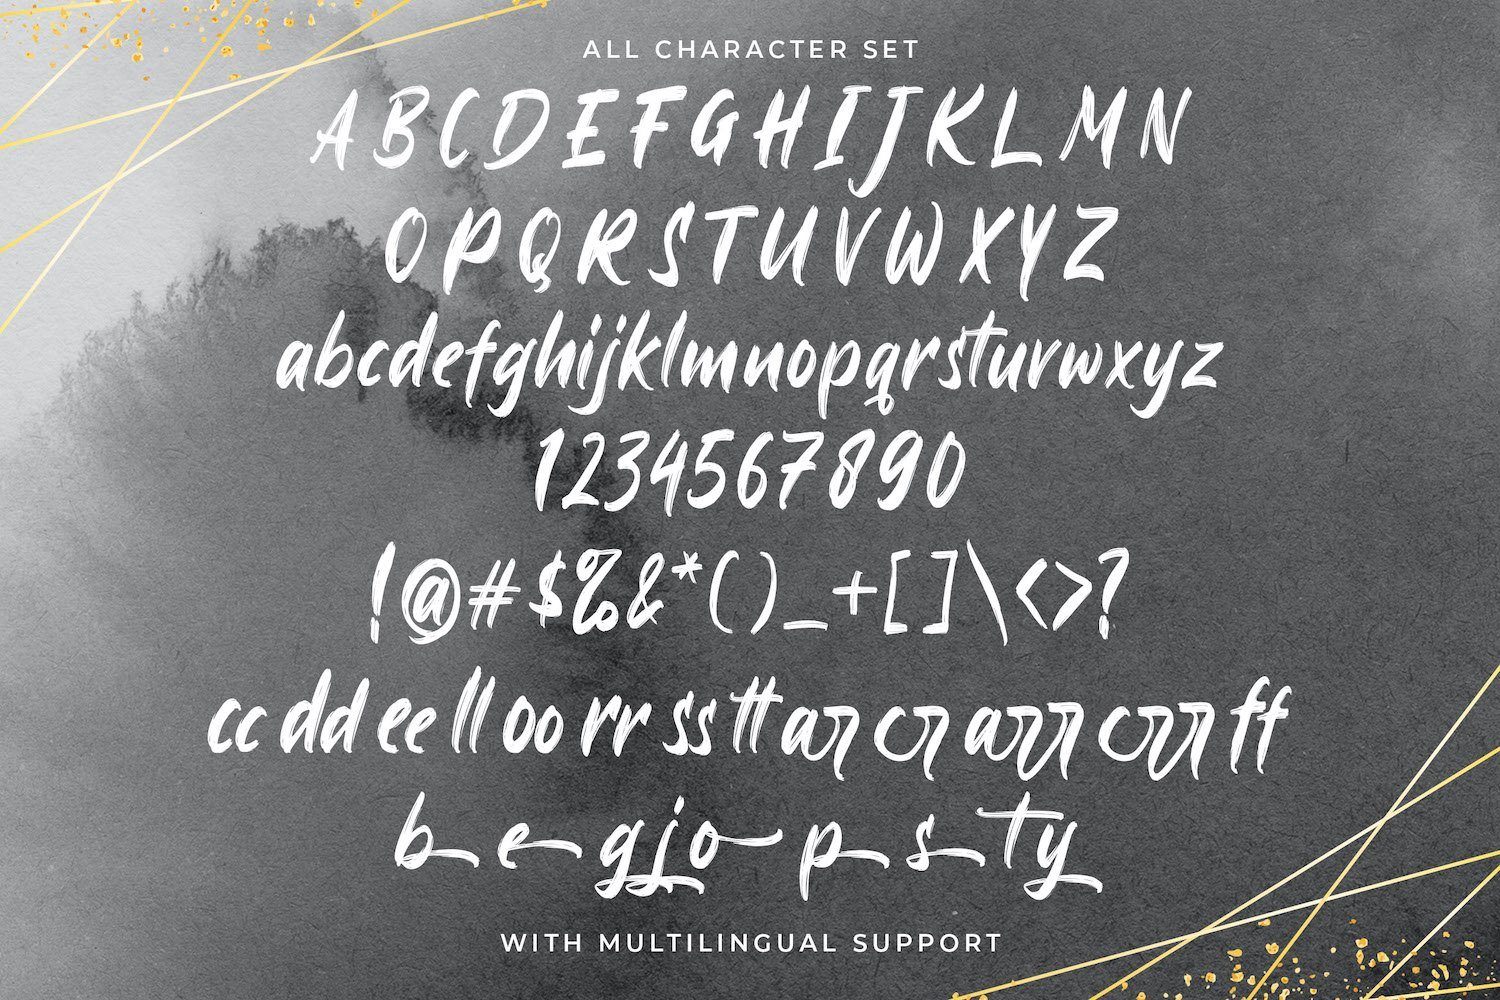 ALL CHARACTER SET
ABCDEFGHIJKLMN
OPQRSTUVWXYZ
abcdefghijklmnopqrstuvwxyz
1234567890
!@#$%&*()_+[]\<>?
cc dd ee ll oo rr ss tt ar cr arr crr ff
b e g j o p s t y
WITH MULTILINGUAL SUPPORT